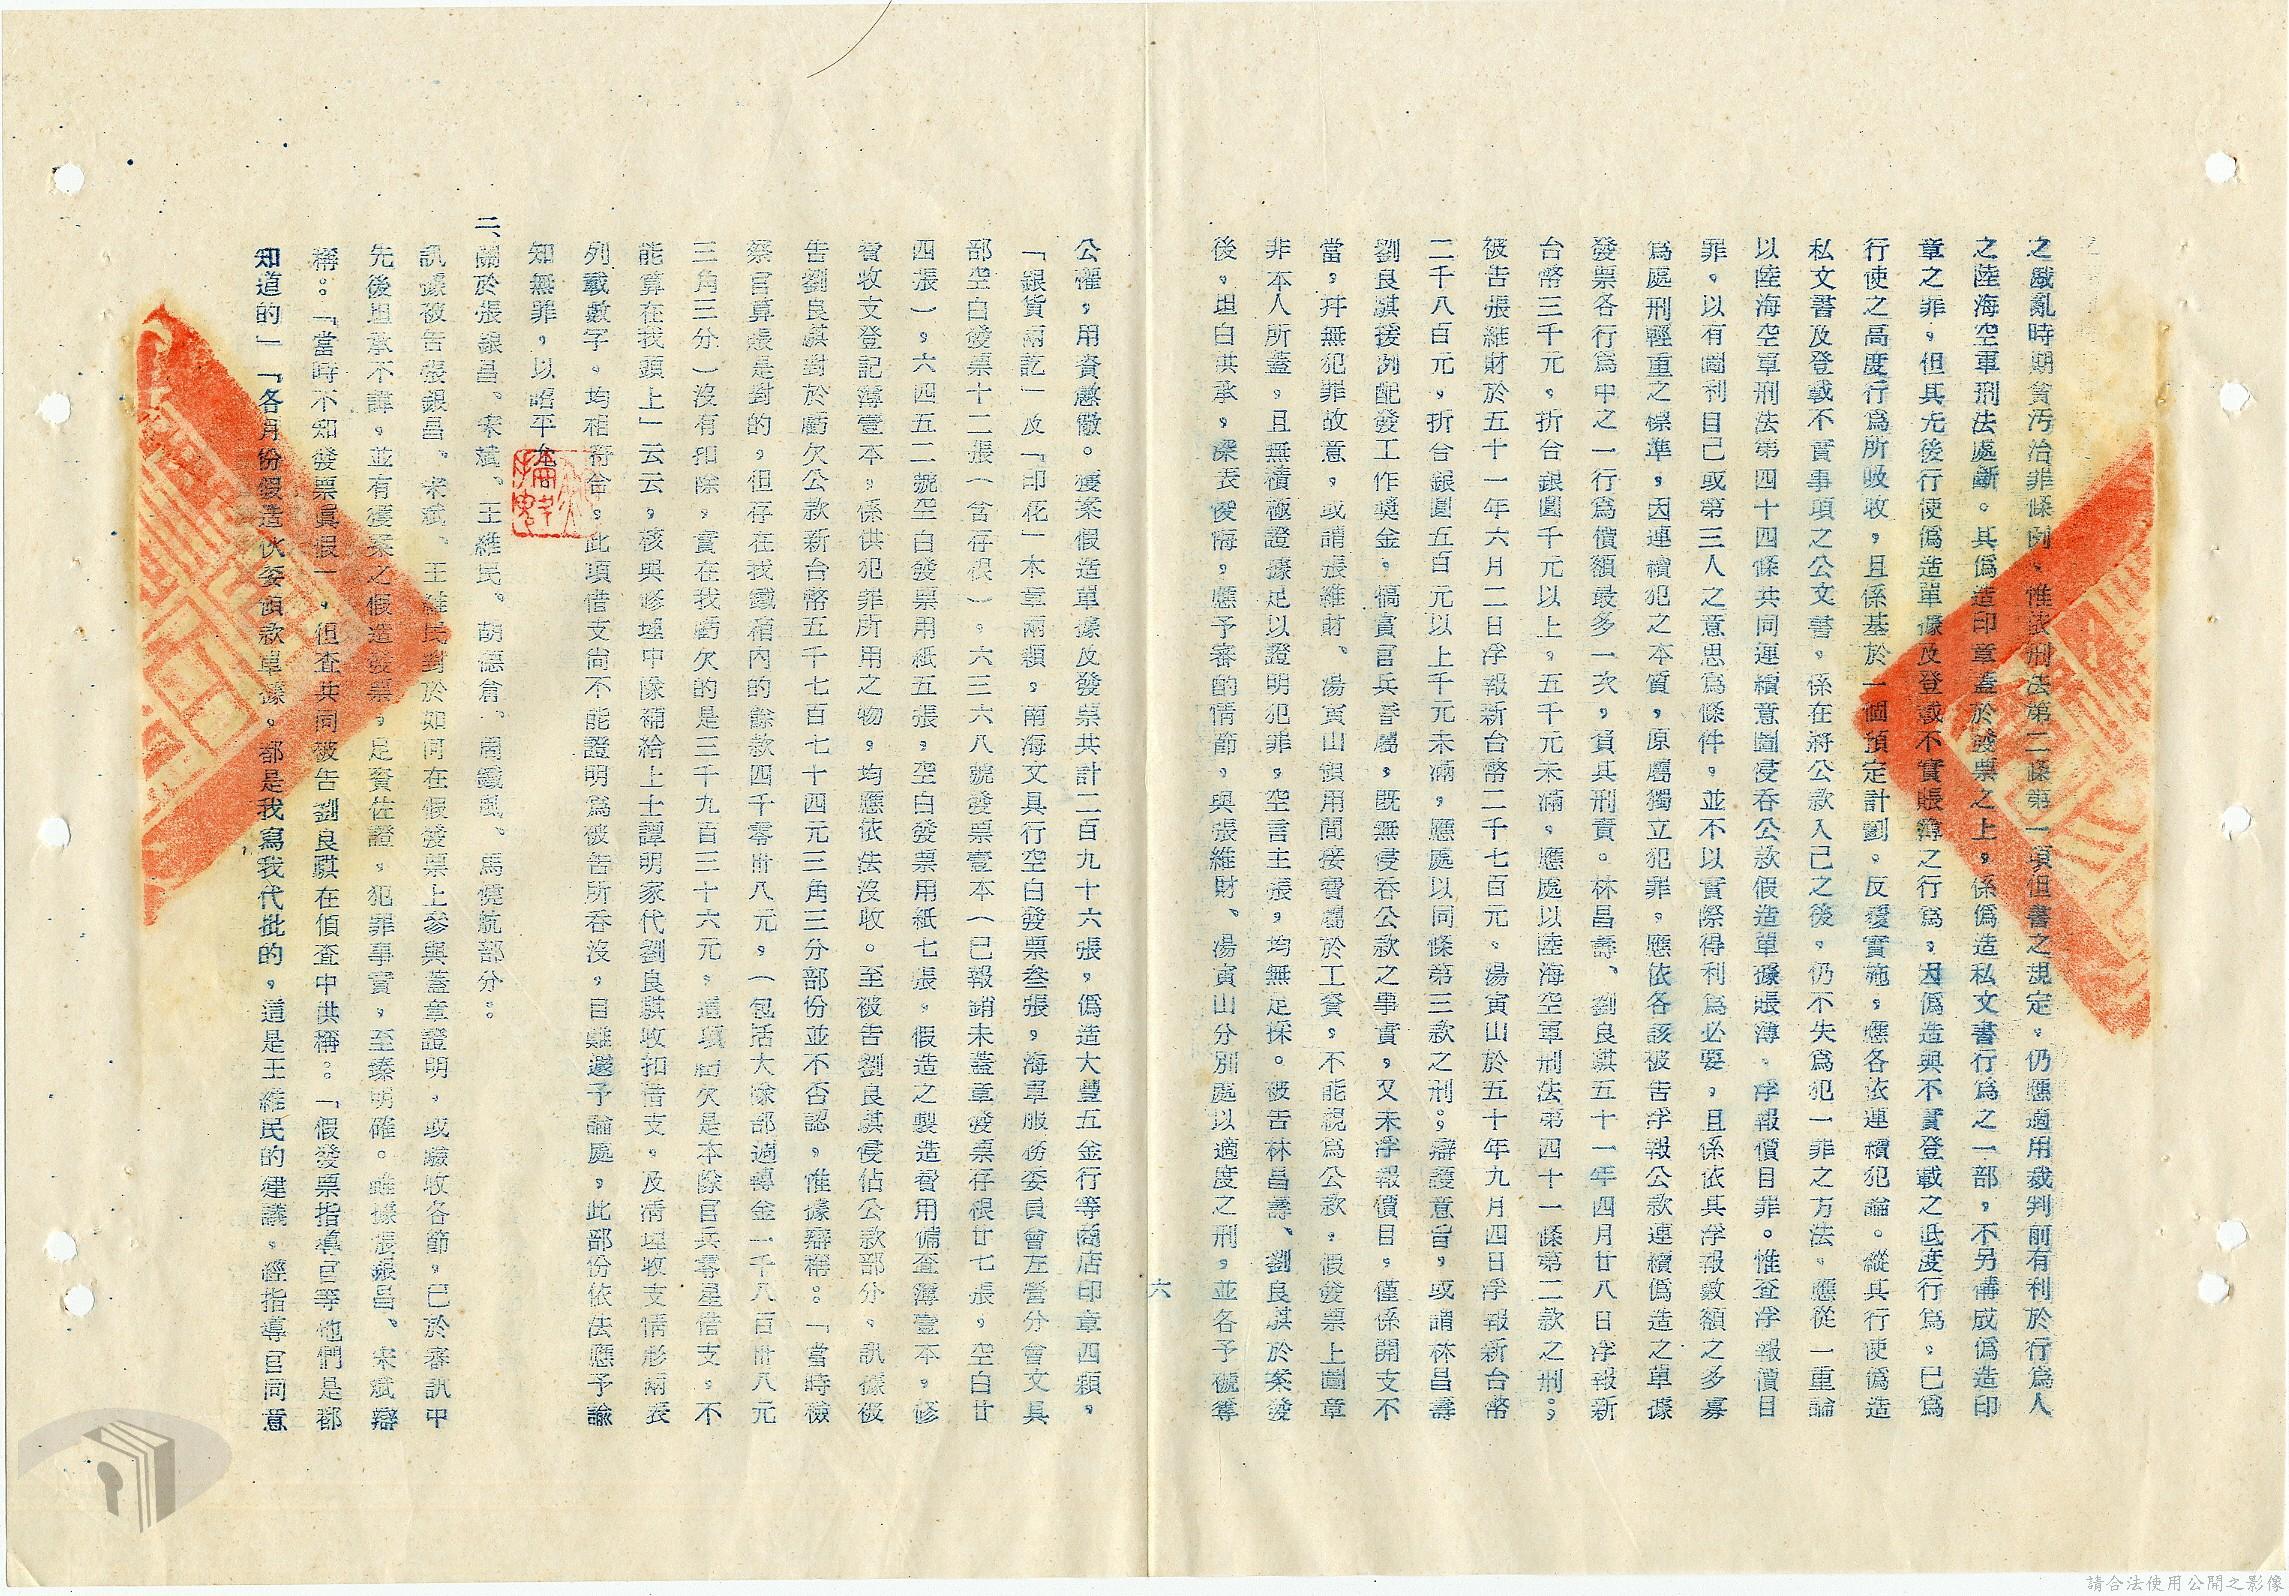 之戡亂時期貪污治罪條例、惟依刑法第二條第一項但書之規定。仍應適用裁判前有利於行為人
之陸海空軍刑法處斷。其偽造印章蓋於發票之上，係偽造私文書行為之一部，不另構成偽造印
章之罪，但其先後行使偽造單據及登載不實賬簿之行為，因偽造與不實登載之低度行為，已為
行使之高度行為所吸收，且係基於一個預定計劃。反覆實施，應各依連續犯論。縱其行使偽造
私文書及登載不實事項之公文書。係在將公款入己之後。仍不失為犯一罪之方法。應從一重論
以陸海空軍刑法第四十四條共同連續意圖侵吞公款假造單據賬簿。浮報價目罪。惟查浮報價目
罪。以有圖利自己或第三人之意思為條件。並不以實際得利為必要，且係依其浮報數額之多寡
為處刑輕重之標準，因連續犯之本質，原屬獨立犯罪。應依各該被告浮報公款連續偽造之單據
發票各行為中之一行為價額最多一次，負其刑責。林昌壽、劉良騏五十一年四月廿八日浮報新
台幣三千元。折合銀圓千元以上。五千元未滿。應處以陸海空軍刑法第四十一條第二款之刑。
被告張維財於五十一年六月二日浮報新台幣二千七百元。湯寅山於五十年九月四日浮報新台幣
二千八百元，折合銀圓五百元以上千元未滿，應處以同條第三款之刑。辯護意旨，或謂林昌壽
劉良騏援例配發工作獎金。犒賞官兵眷屬，既無侵吞公款之事實，又未浮報價目。僅係開支不
當，幷無犯罪故意，或謂張維財、湯寅山領用間接費屬於工資，不能視為公款，假發票上圖章
非本人所蓋，且無積極證據足以證明犯罪，空言主張，均無足採。被告林昌壽、劉良騏於案發
後。坦白供承，深表後悔，應予審酌情節，與張維財、湯寅山分別處以適度之刑，並各予褫奪
六
公權，用資懲儆。獲案假造單據及發票共計二百九十六張，偽造大豐五金行等商店印章四顆，
「銀貨兩訖」及「印花」木章兩顆，南海文具行空白發票叁張，海軍服務委員會左營分會文具
部空白發票十二張（含存根）。六三六八號發票壹本（已報銷未蓋章發票存根廿七張。空白廿
四張），六四五二號空白發票用紙五張，空白發票用紙七張。假造之製造費用備查簿壹本。修
費收支登記簿壹本。係供犯罪所用之物，均應依法沒收。至被告劉良騏侵佔公款部分。訊據被
告劉良騏對於虧欠公款新台幣五千七百七十四元三角三分部份並不否認，惟據辯稱：「當時檢
察官算賬是對的，但存在找鐵箱內的餘款四千零卅八元，（包括大隊部週轉金一千八百卅八元
三角三分）沒有扣除，實在我虧欠的是三千九百三十六元。這項虧欠是本隊官兵零星借支。不
能算在我頭上」云云，核與修理中隊補給上士譚明家代劉良騏收扣借支，及清理收支情形兩表
列載數字。均相符合。此項借支尚不能證明為被告所吞沒，自難遽予論處，此部份依法應予諭
知無罪，以昭平允。
二、關於張銀昌、宋斌、王維民、胡德倉、閻鐵風、馬堯航部分。
訊據被告張銀昌、宋斌、王維民對於如何在假發票上參與蓋章證明，或驗收各節，已於審訊中
先後坦承不諱。並有獲案之假造發票。足資佐證，犯罪事實，至臻明確。雖據張銀昌、宋斌辯
稱：「當時不知發票真假」，但查共同被告劉良騏在偵查中供稱：「假發票指導官等他們是都
知道的」「各月份假造伙委領款單據。都是我寫我代批的，這是王維民的建議。經指導官同意
請合法使用公開之影像